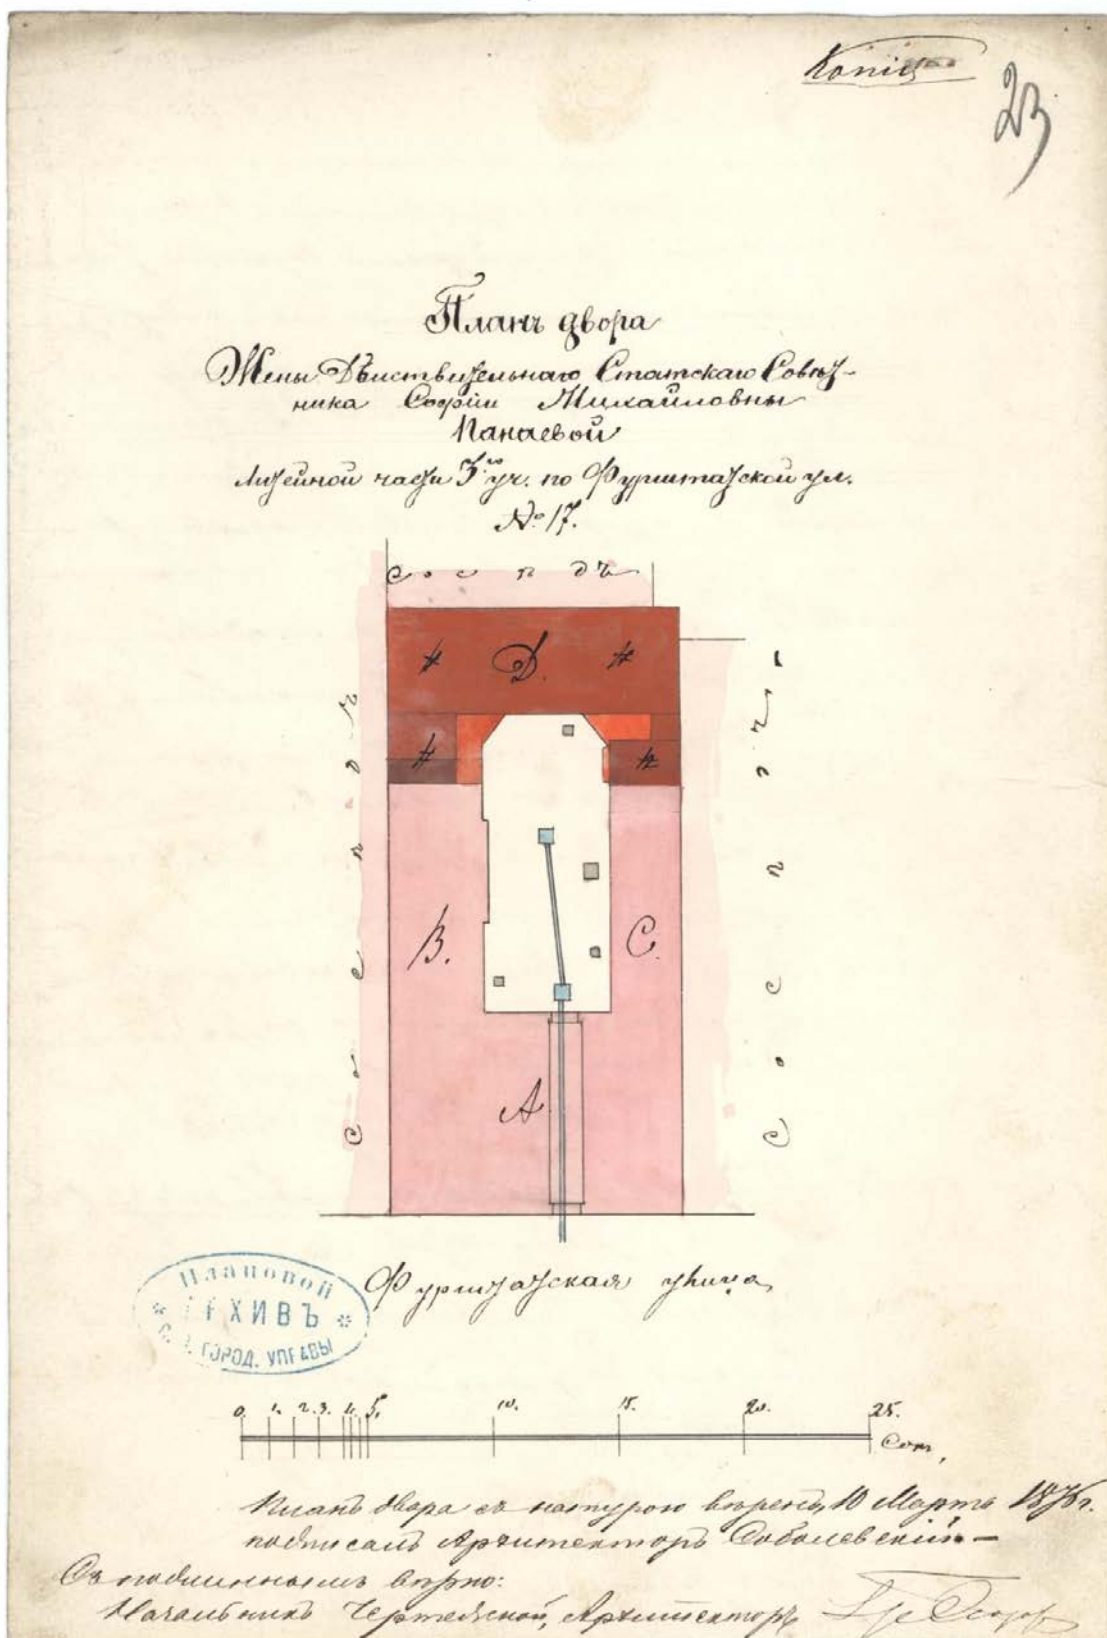 Копія
23
Планъ двора
Жены Дѣйствительнаго Статскаго Совѣт-
ника Софіи Михайловны
Панаевой
Литейной части 3го уч. по Фурштатской ул.
№ 17.
Сосѣдъ
# D. #
Сосѣдъ
Сосѣдъ
# #
B.
C.
A
Фурштатская улица
Плановой
АРХИВЪ
ГОРОД. УПРАВЫ
0. 1. 2. 3. 4. 5. 10. 15. 20. 25.
Саж.
Планъ двора съ натурою вѣренъ, 10 Марта
подписалъ Архитекторъ Соболевскій
Съ подлиннымъ вѣрно:
Начальникъ Чертежной, Архитекторъ